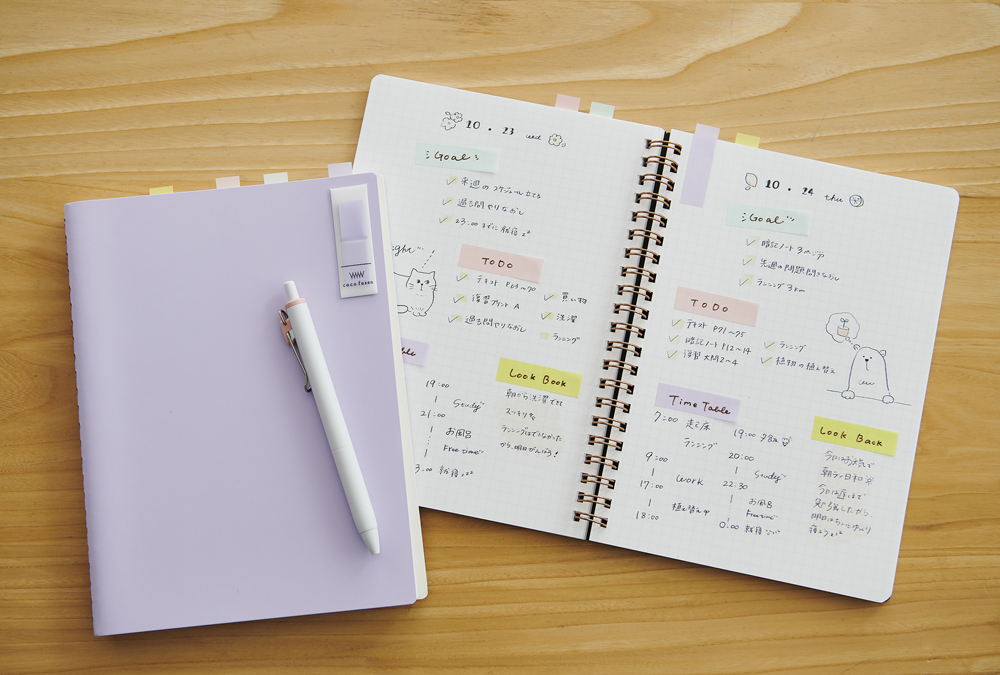 coco fusen
20 . 23 wed
Goal
来週の スケジュール立てる
過去問やりなおし
23:00 までに就寝
ght
ToDo
テキスト P61~70
復習プリント A
過去問やりなおし
買い物
洗濯
ランニング
ble
19:00
Study
21:00
お風呂
Free time
3:00 就寝
Look Book
朝から洗濯できて
スッキリ
ランニングはできなかった
から、明日がんばる!
10 . 24 thu
Goal
暗記ノート 3ページ
先週の問題 解きなおし
ランニング 3km
ToDo
テキスト P71~75
暗記ノート P12~14
復習 大問2~4
ランニング
植物の植え替え
Time Table
7:00 起床
ランニング
9:00
work
17:00
植え替え
18:00
19:00 夕食
20:00
Study
22:30
お風呂
Free time
0:00 就寝
Look Back
今日はお天気で
朝ラン日和
今日は遅くまで
勉強したから
明日はちょっとゆっくり